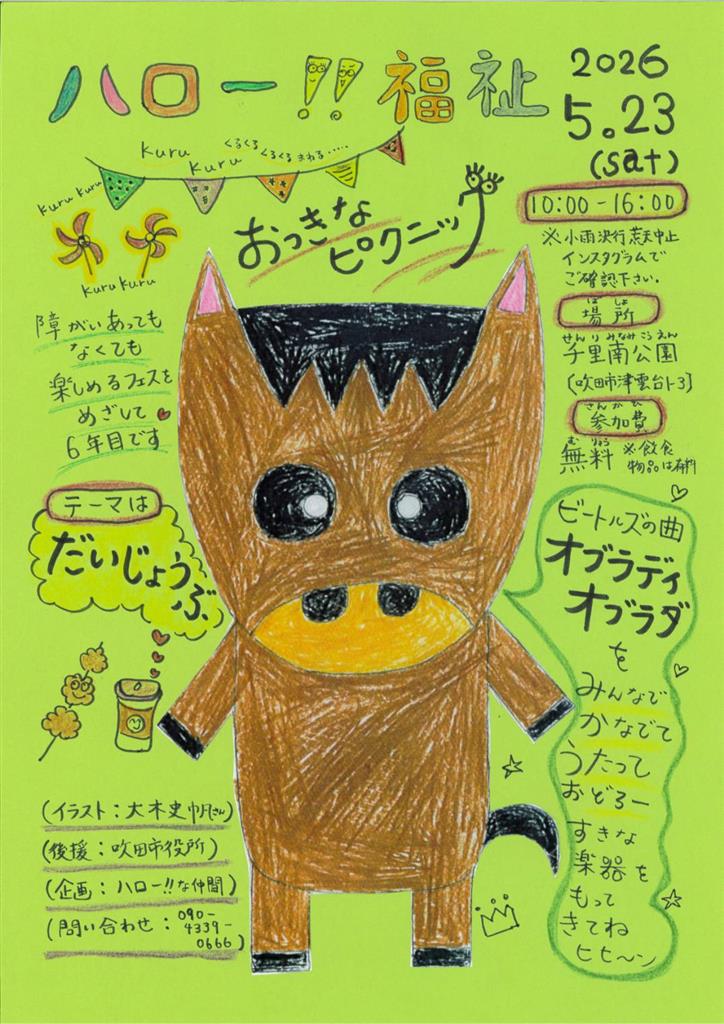 ハロー!! 福祉
2026
5.23
(sat)
Kuru
Kuru
くるくる
くるくるまわる.....
Kuru Kuru
Kuru Kuru
おっきな
ピクニック
10:00-16:00
※小雨決行荒天中止
インスタグラムで
ご確認下さい.
ばしょ
場所
せんりみなみこうえん
千里南公園
(吹田市津雲台1-3)
さんかひ
参加費
むりょう
無料
※飲食
物品は有料
障がいあっても
なくても
楽しめるフェスを
めざして
6年目です
テーマは
だいじょうぶ
ビートルズの曲
オブラディ
オブラダ
を
みんなで
かなでて
うたって
おどろー
すきな
楽器を
もって
きてね
ヒヒ〜ン
(イラスト:大木史帆さん)
(後援:吹田市役所)
(企画:ハロー!!な仲間)
(問い合わせ:090-
4339-
0666)